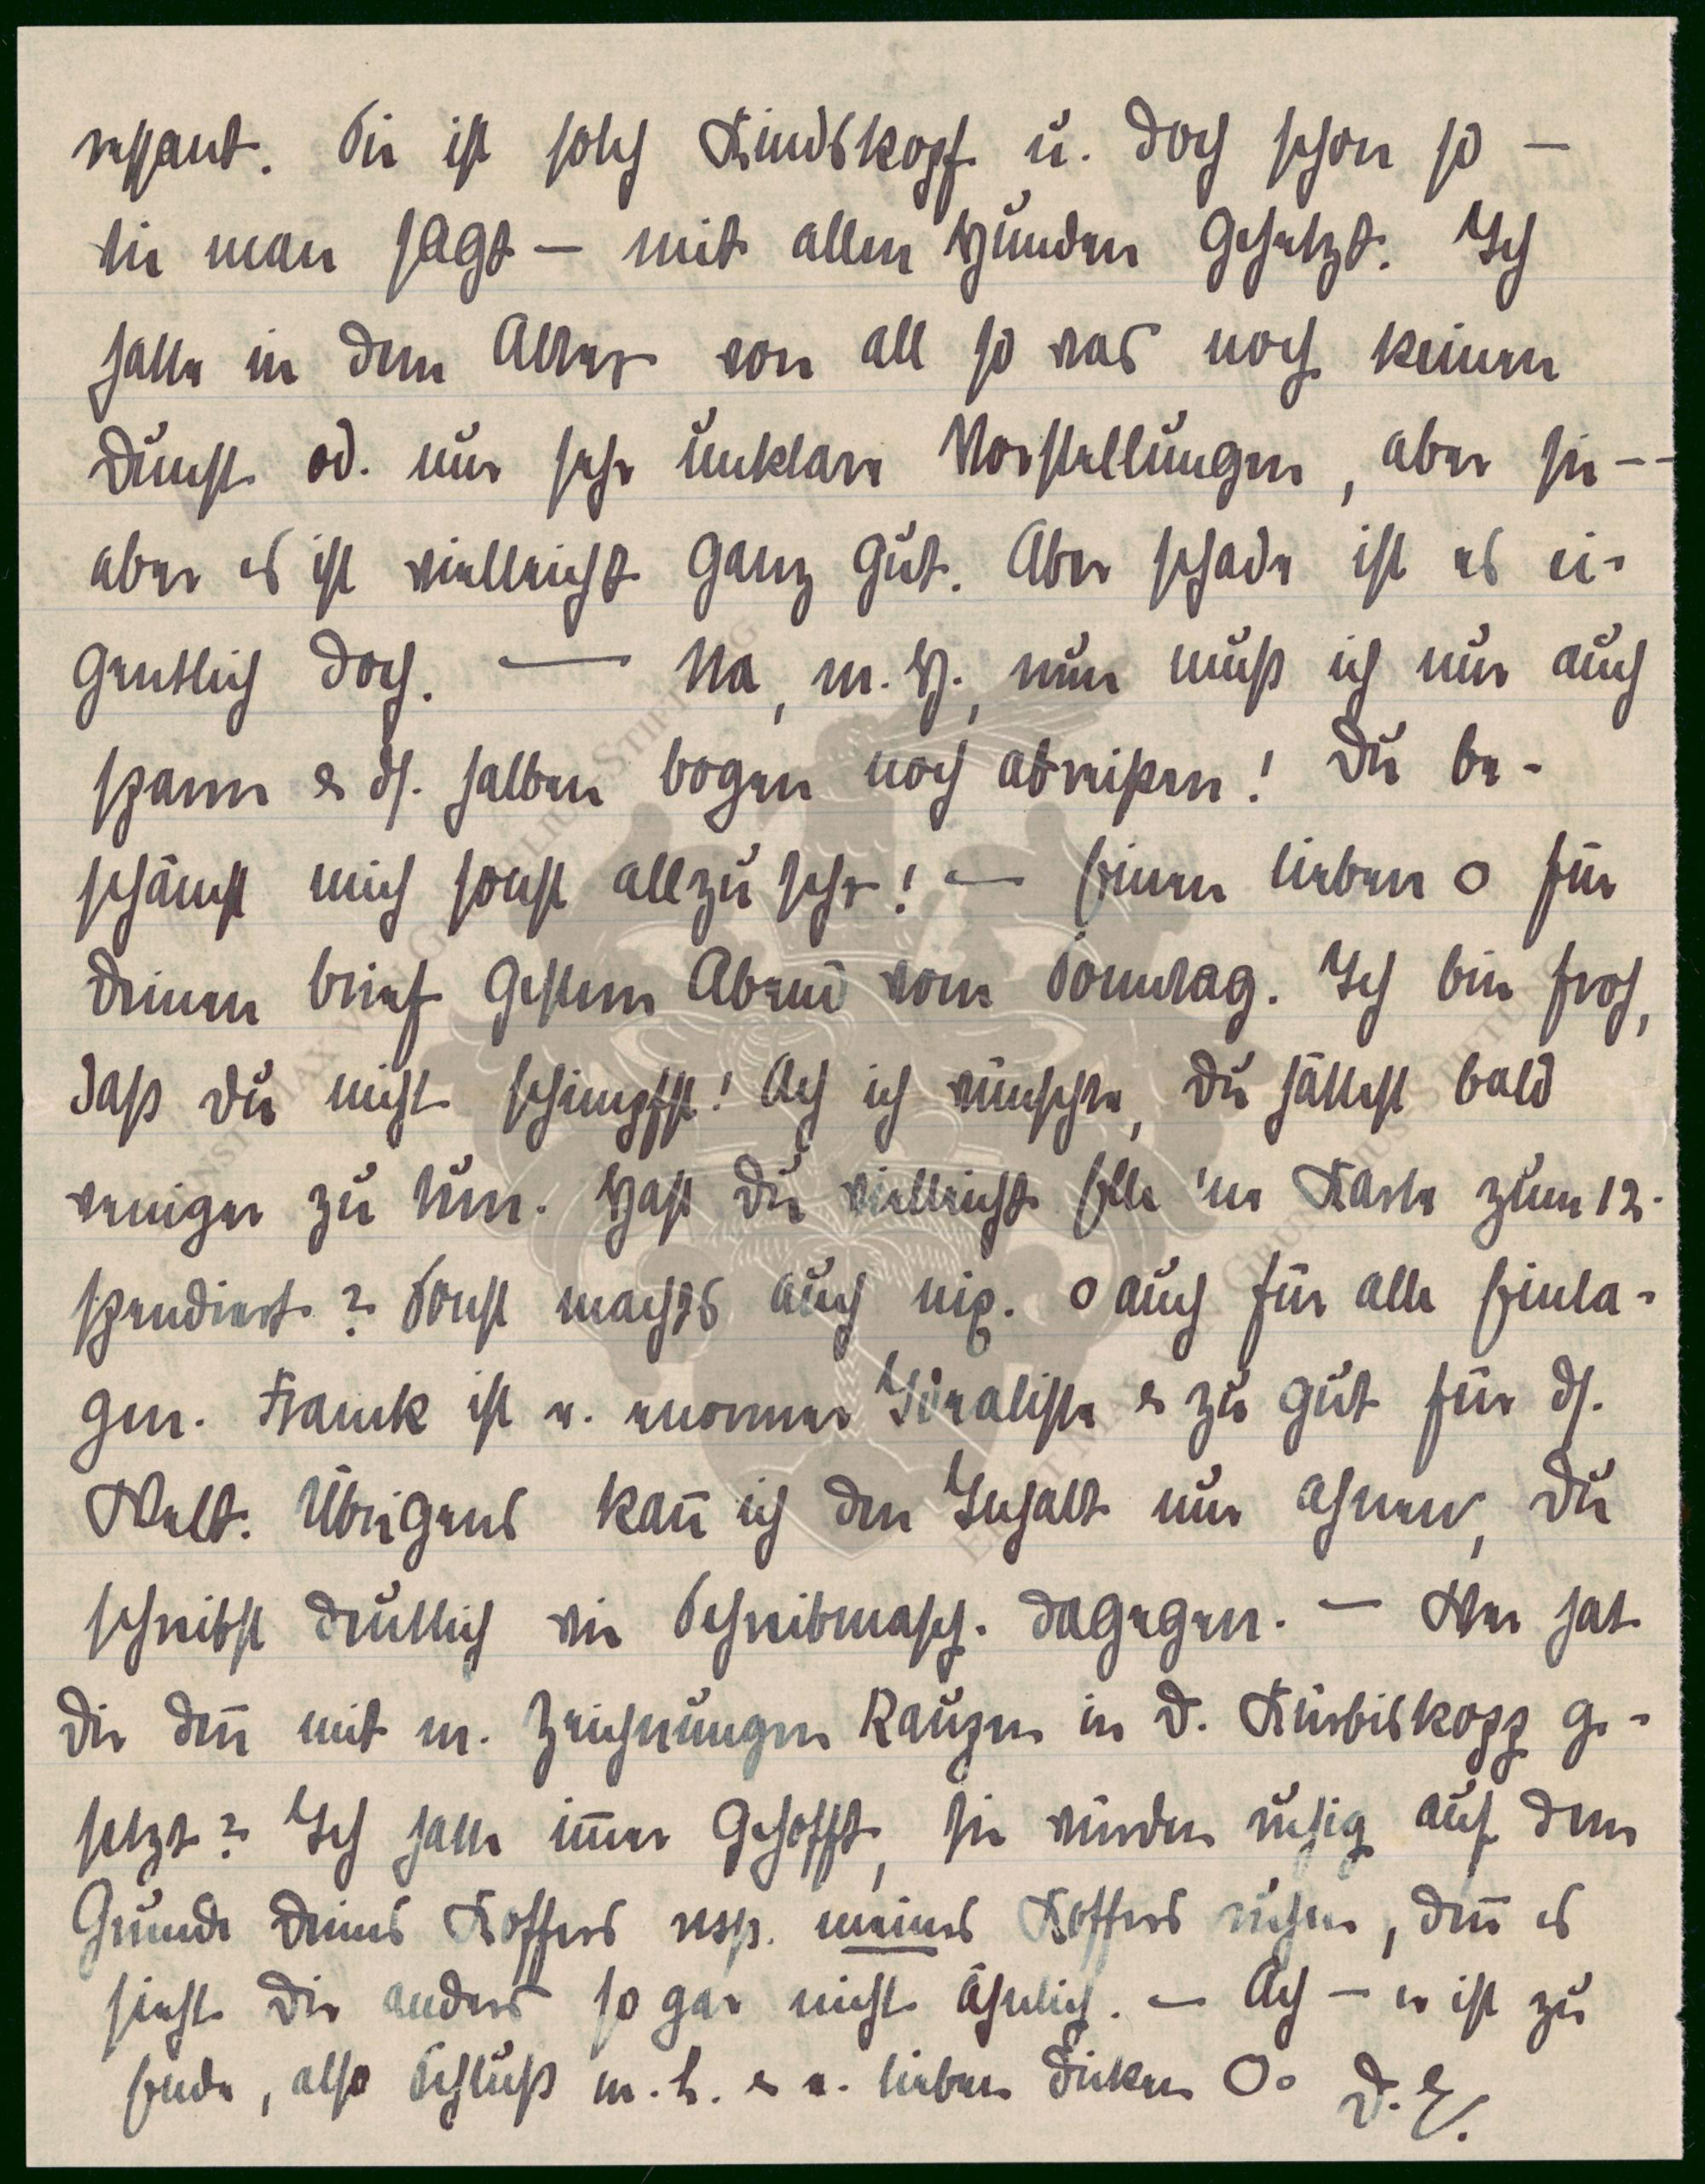 ressant. Sie ist solch Kindskopf u. doch schon so –
wie man sagt – mit allen Hunden gehetzt. Ich
hatte in dem Alter von all so was noch keinen
Dunst od. nur sehr unklare Vorstellungen, aber sie --
aber es ist vielleicht ganz gut. Aber schade ist es ei-
gentlich doch. — Na, m. H., nun muß ich nur auch
sparen & ds. halben Bogen noch abreißen! Du be-
schämst mich sonst allzu sehr! — Einen lieben O für
Deinen Brief gestern Abend vom Sonntag. Ich bin froh,
daß Du nicht schimpfst! Ach ich wünschte, Du hättest bald
weniger zu tun. Hast Du vielleicht Elle 'ne Karte zum 12.
spendiert? Sonst machts auch nix. O auch für alle Einla-
gen. Franck ist e. enormer Idealiste & zu gut für ds.
Welt. Übrigens kan̄ ich den Inhalt nur ahnen, Du
schreibst deutlich wie Schreibmasch. dagegen. — Wer hat
Dir den̄ mit m. Zeichnungen Rauzen in D. Kürbiskopp ge-
setzt? Ich hatte im̄er gehofft, sie würden ruhig auf dem
Grunde Deines Koffers resp. meines Koffers ruhen, den̄ es
sieht Dir anders so gar nicht ähnlich. — Ach – er ist zu
Ende, also Schluß m. L. & e. lieben dicken O. D. E.